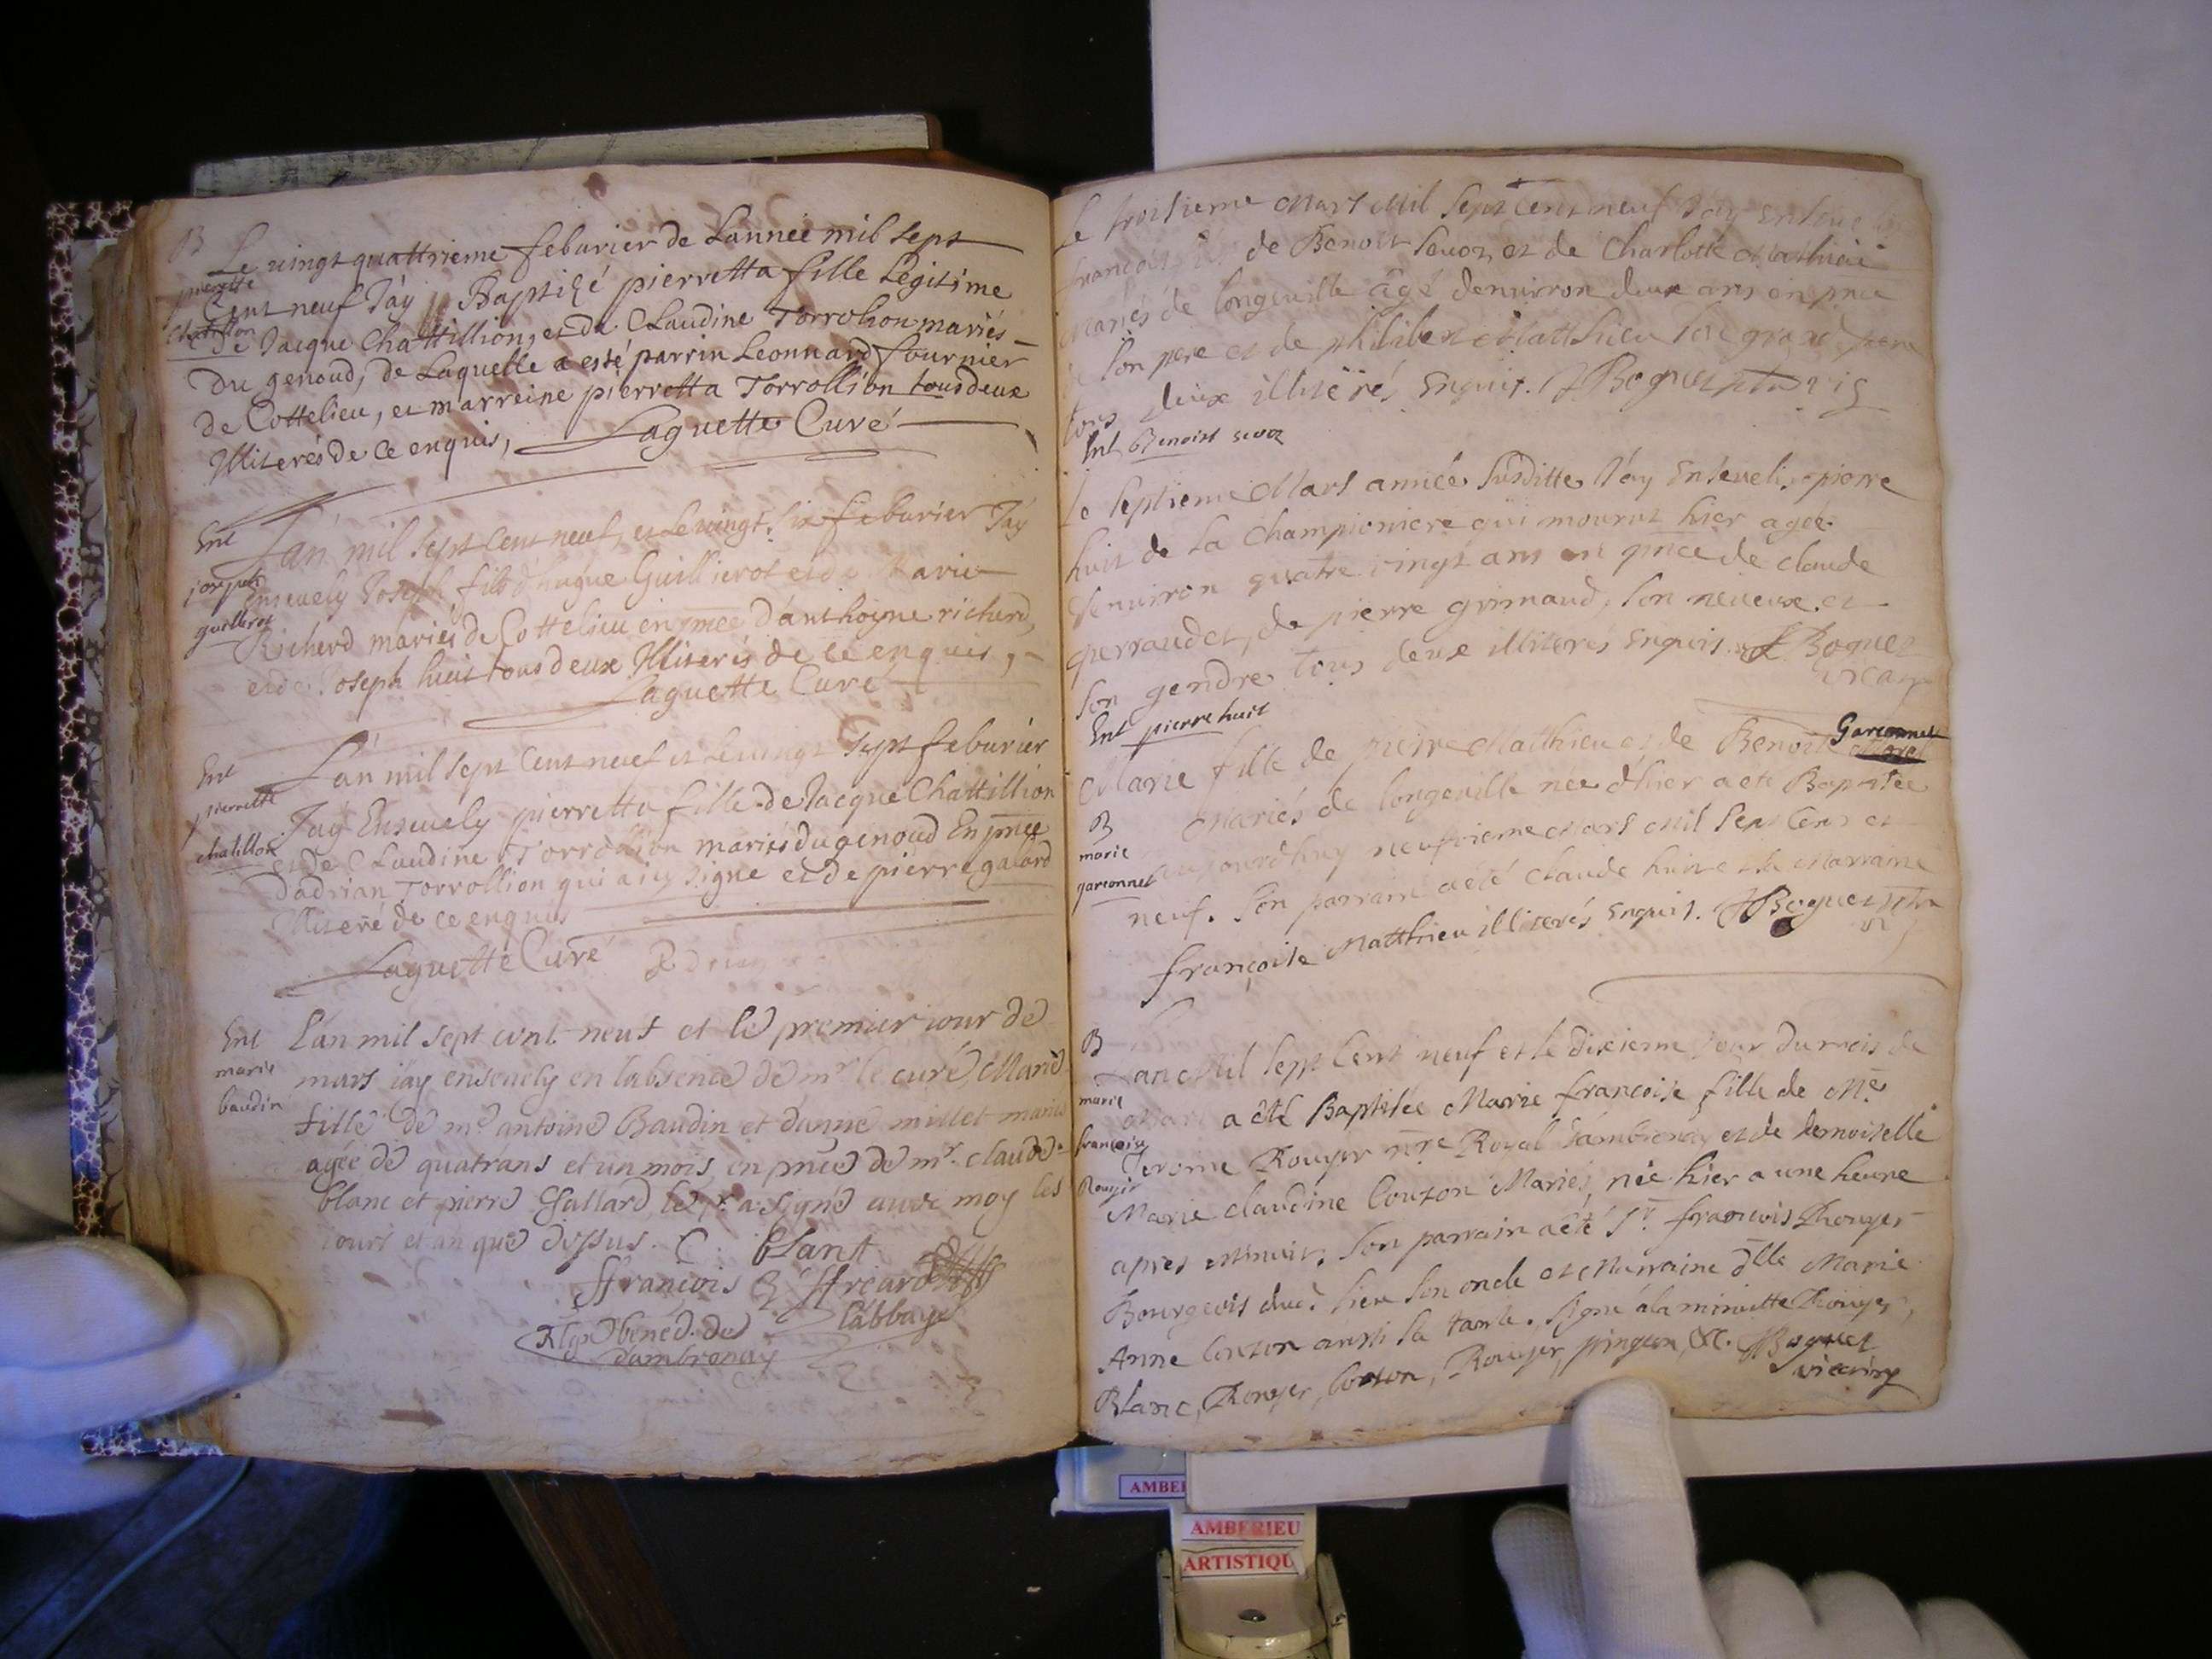 B
pierrette
Chatillon
Le vingt quattrieme feburier de Lannee mil sept
Cent neuf J'ay Baptizé pierretta fille Legitime
de Jacque Chattillion, et de Claudine Torrolion mariés
Du genoud, de Laquelle a esté parrin Leonnard fournier
de Cottelieu, et marreine pierretta Torrollion tous deux
Illiterés de ce enquis, Laguette Curé
Ent
joseph
guillerot
L'an mil sept cent neuf, et le vingt six feburier J'ay
Ensevely Joseph fils d'hugue Guillierot et de Marie
Richerd mariés de Cottelieu en pnce d'anthoyne richerd,
et de Joseph huit tous deux Illiterés de ce enquis,
Laguette Curé
Ent
pierrette
chatillon
L'an mil sept Cent neuf et le vingt sept feburier
J'ay Ensevely pierretta fille de Jacque Chattillion
et de Claudine Torrollion mariés du genoud En pnce
d'adrian Torrollion qui a icy signé et de pierre galard
Illiteré de ce enquis
Laguette Curé
Ent
marie
baudin
L'an mil sept cent neuf et le premier iour de
mars i'ay ensevely en l'absence de mr le curé Marie
fille de me antoine Baudin et d'anne millet mariés
agée de quatr ans et un mois, en pnce de mr claude
blanc et pierre Gallard, le pr a signé avec moy les
iours et an que dessus. C. blanc
ffrancois ffreard
Rlgx bened. de l'abbaye
d'ambrenay
Le troisieme Mars Mil Sept Cent neuf J'ay Enseveli
francois fils de Benoit Sevoz et de Charlotte Matthieu
Mariés de longeville âgé d'environ deux ans en pnce
de son pere et de philibert Matthieu son grand pere
tous deux illiterés Enquis. J Boguet ptre vic
Ent Benoist sevoz
Le septieme Mars année susditte J'ay Enseveli pierre
huit de la Championiere qui mourut hier agée
d'environ quatre vingt ans en pnce de claude
perraudet, de pierre grimaud, son neveux et
son gendre tous deux illiterés Enquis. J Boguet
vicair
Ent pierre huit
B
marie
garconnet
Marie fille de pierre Matthieu et de Benoite Garconnet
Mariés de longeville née d'hier a été Baptisée
aujourdhuy neufvieme Mars Mil Sept Cent et
neuf. Son parrain a été claude huit et la Marraine
françoise Matthieu illiterés Enquis. J Boguet ptre
vi
B
marie
françoise
Rouyer
L'an Mil Sept Cent neuf et le dixieme jour du mois de
Mars a été Baptisée Marie francoise fille de Me
Jerome Rouyer nre Royal d'ambrenay et de demoiselle
Marie claudine Couzon Mariés, née hier a une heure
apres Minuit. Son parrain a été Sr francois Rouyer
Bourgeois dud. lieu son oncle et Marraine dlle Marie
Anne Couzon aussi sa tante. Signé à la minutte Rouyer,
Blanc, Rouyer, Couzon, Rouyer, pingeon, &c. J Boguet
vicaire
AMBERIEU
ARTISTIQU